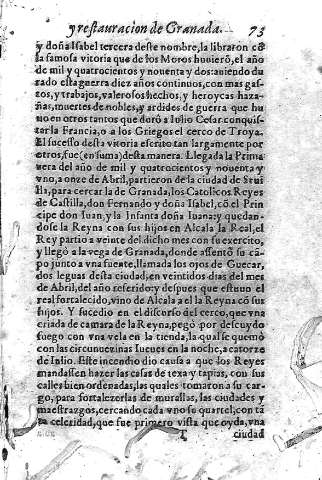 y restauracion de Granada. 73
y doña Isabel tercera deste nombre, la libraron cõ
la famosa vitoria que de los Moros huuierõ, el año
de mil y quatrocientos y nouenta y dos: auiendo du
rado esta guerra diez años continuos, con mas gas-
tos, y trabajos, valerosos hechos, y heroycas haza-
ñas, muertes de nobles, y ardides de guerra que hu
uo en otros tantos que dorò a Iulio Cesar conquis-
ter la Francia, o a los Griegos el cerco de Troya.
El sucesso desta vitoria escrito tan largamente por
otros, fue (en suma) desta manera. Llegada la Prima
vera del año de mil y quatrocientos y nouenta y
vno, a onze de Abril, partieron de la ciudad de Seui
lla, para cercar la de Granada, los Catolicos Reyes
de Castilla, don Fernando y doña Isabel, cõ el Prin
cipe don Iuan, y la Infanta doña Iuana: y quedan-
dose la Reyna con sus hijos en Alcala la Real, el
Rey partio a veinte del dicho mes con su exercito,
y llegò a la vega de Granada, donde assentò su ca-
po junto a vna fuente, llamada los ojos de Guecar,
dos leguas desta ciudad, en veintidos dias del mes
de Abril, del año referido: y despues que estuuo el
real fortalecido, vino de Alcala a el la Reyna cõ sus
hijos. Y sucedio en el discurso del cerco, que vna
criada de camara de la Reyna, pegò por descuydo
fuego con vna vela en la tienda, la qual se quemò
con las circunuezinas Iueues en la noche, a catorze
de Iulio. Este incendio dio causa a que los Reyes
mandassen hazer las casas de texa y tapias, con sus
calles bien ordenadas, las quales tomaron a su car-
go, para fortalezerlas de murallas, las ciudades y
maestrazgos, cercando cada vno su quartel, con tã
ta celeridad, que fue primero vista que oyda, vna
T ciudad